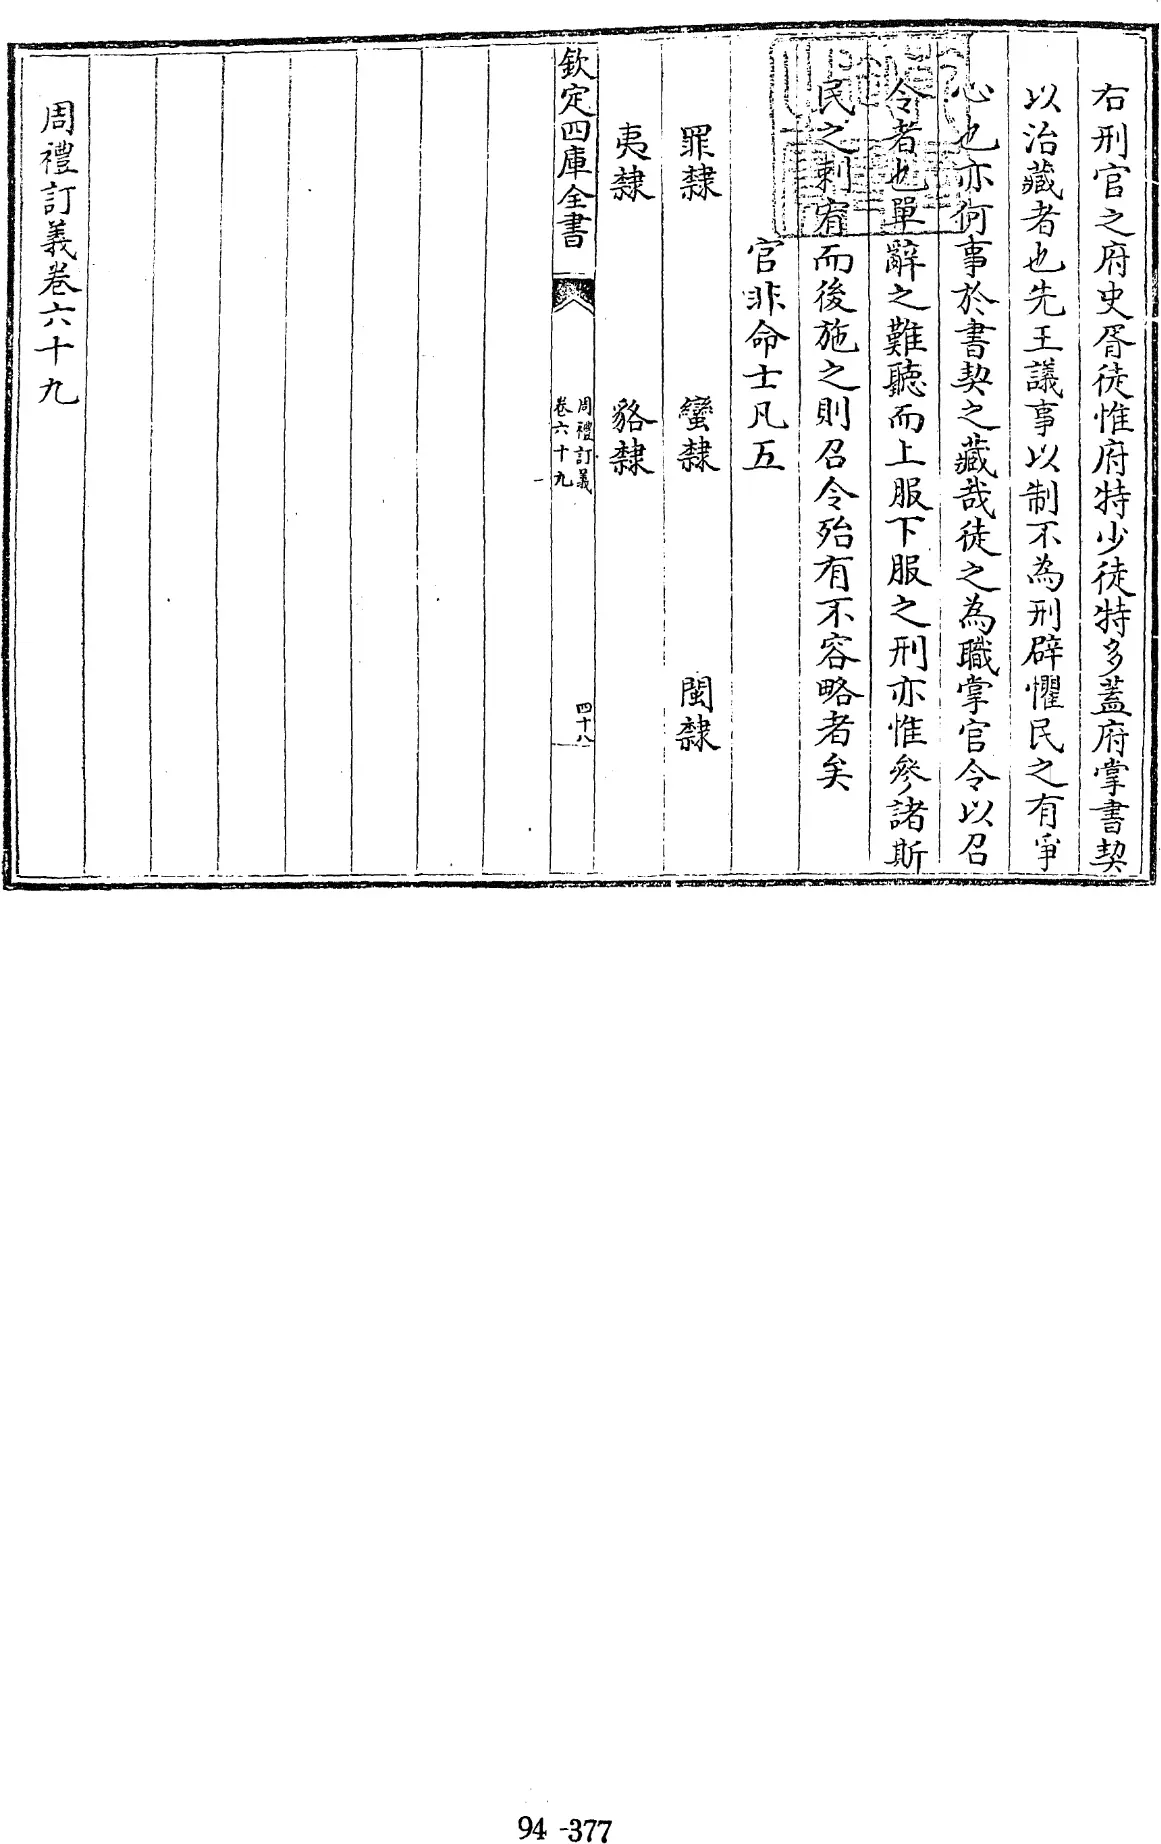 右刑官之府史胥徒惟府特少徒特多蓋府掌書契
以治藏者也先王議事以制不為刑辟懼民之有爭
心也亦何事於書契之藏哉徒之為職掌官令以召
令者也單辭之難聽而上服下服之刑亦惟參諸斯
民之刺宥而後施之則召令殆有不容略者矣
官非命士凡五
罪隸 蠻隸 閩隸
夷隸 貉隸
欽定四庫全書
周禮訂義
卷六十九
四十八
周禮訂義卷六十九
94-377